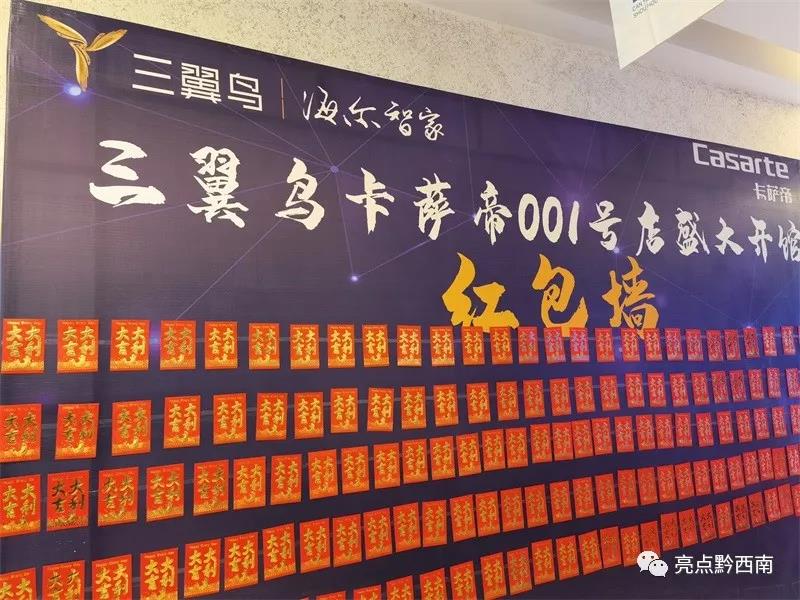 三翼鸟 | 海尔智家
Casarte
卡萨帝
三翼鸟卡萨帝001号店盛大开馆
红包墙
大吉
大利
亮点黔西南